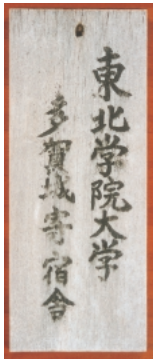 東北学院大学
多賀城寄宿舎